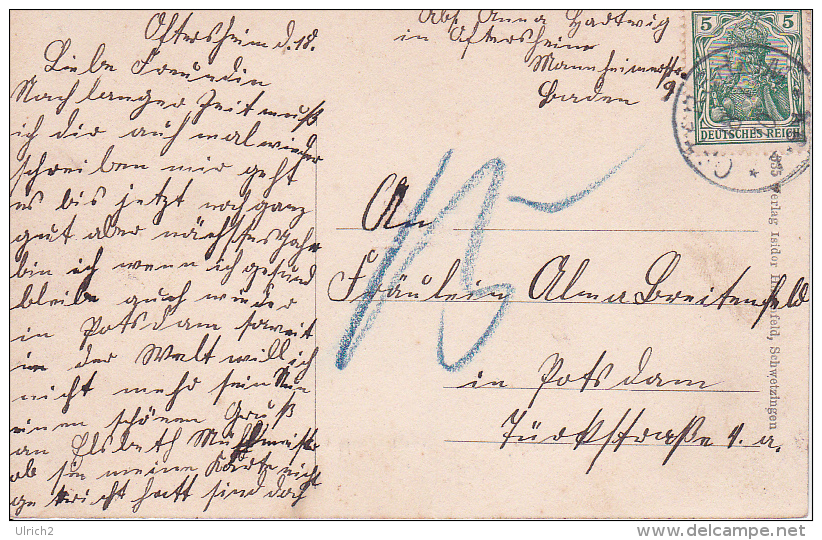 Oftersheim d. 18.
Liebe Freundin
Nach langer Zeit muß
ich dir auch mal wieder
schreiben mir geht
es bis jetzt noch ganz
gut aber nächstes Jahr
bin ich wenn ich gesund
bleibe auch wieder
in Potsdam soweit
in der Welt will ich
nicht mehr sein Nun
einen schönen Gruß
an Elsbeth
ob sie meine Karte nicht
hatt sind doch
Abs. Anna Hartwig
in Oftersheim
Mannheimerstr.
Baden
5 5
DEUTSCHES REICH
15
An
Fräulein Alma Breitenfeld
in Potsdam
Türkstraße 1. a.
835 Verlag Isidor Schwetzingen
Ulrich2
delcampe.net